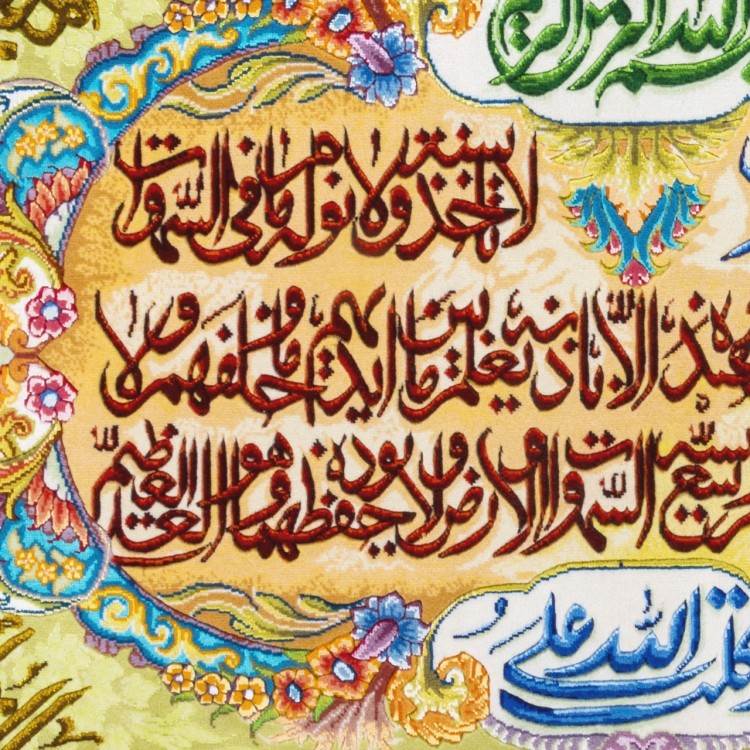 الله الرحمن الرحيم
لا تأخذه سنة ولا نوم له ما في السموات
نده الا باذنه يعلم ما بين ايديهم وما خلفهم ولا
وسع سيه السموات والارض ولا يوده حفظهما وهو العلي العظيم
كلت على الله